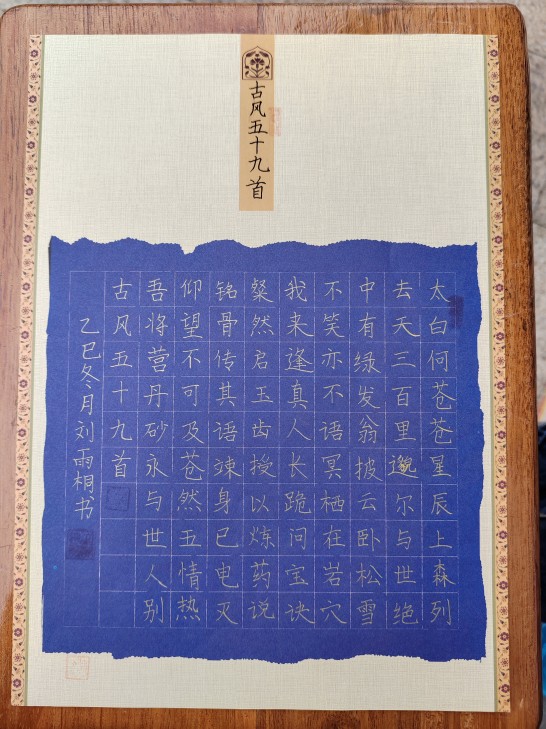 古风五十九首
太白何苍苍星辰上森列
去天三百里邈尔与世绝
中有绿发翁披云卧松雪
不笑亦不语冥栖在岩穴
我来逢真人长跪问宝诀
粲然启玉齿授以炼药说
铭骨传其语竦身已电灭
仰望不可及苍然五情热
吾将营丹砂永与世人别
古风五十九首
乙巳冬月刘雨桐书